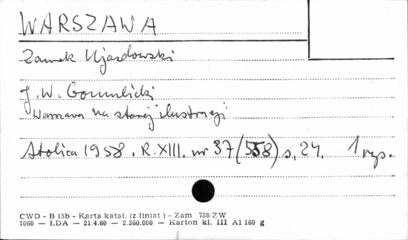 WARSZAWA
Zamek Ujazdowski
J. W. Gomulicki
Warszawa na starej ilustracji
Stolica 1958. R. XIII. nr 37 (558) s. 24. 1 ryc.
CWD - B 15b - Karta katal. (z liniat) - Zam 788/ZW
1060 — ŁDA — 21.4.60 — 2.360.000 — Karton kl. III A1 160 g